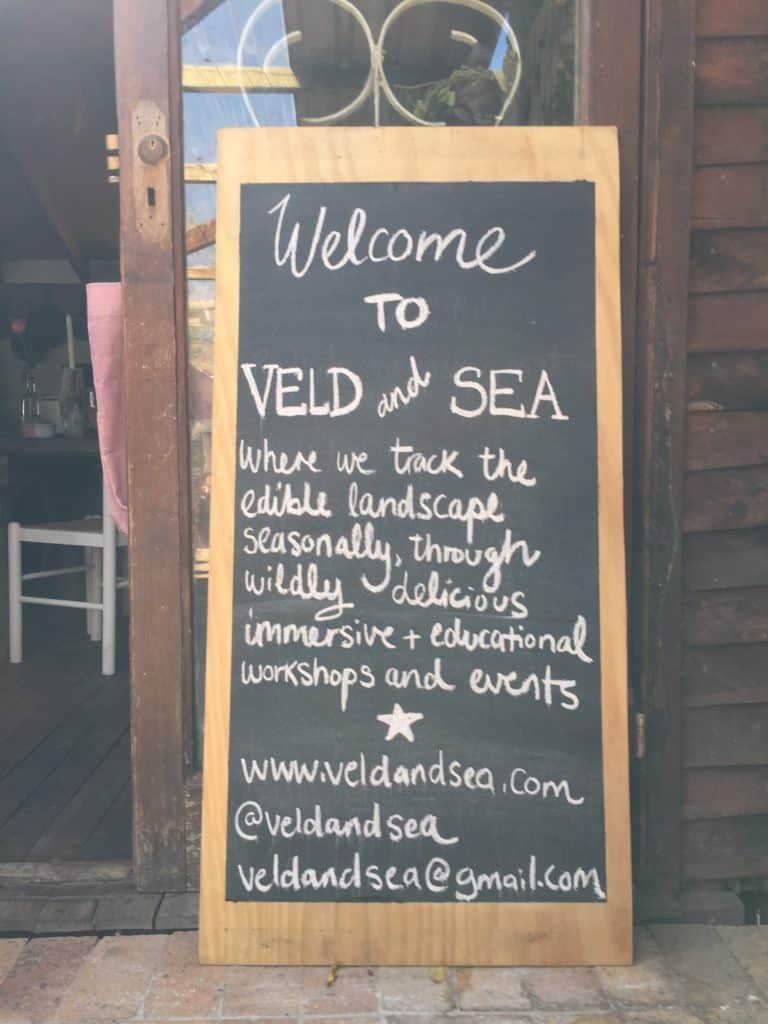 Welcome
TO
VELD and SEA
Where we track the
edible landscape
seasonally, through
wildly delicious
immersive + educational
workshops and events
www.veldandsea.com
@veldandsea
veldandsea@gmail.com